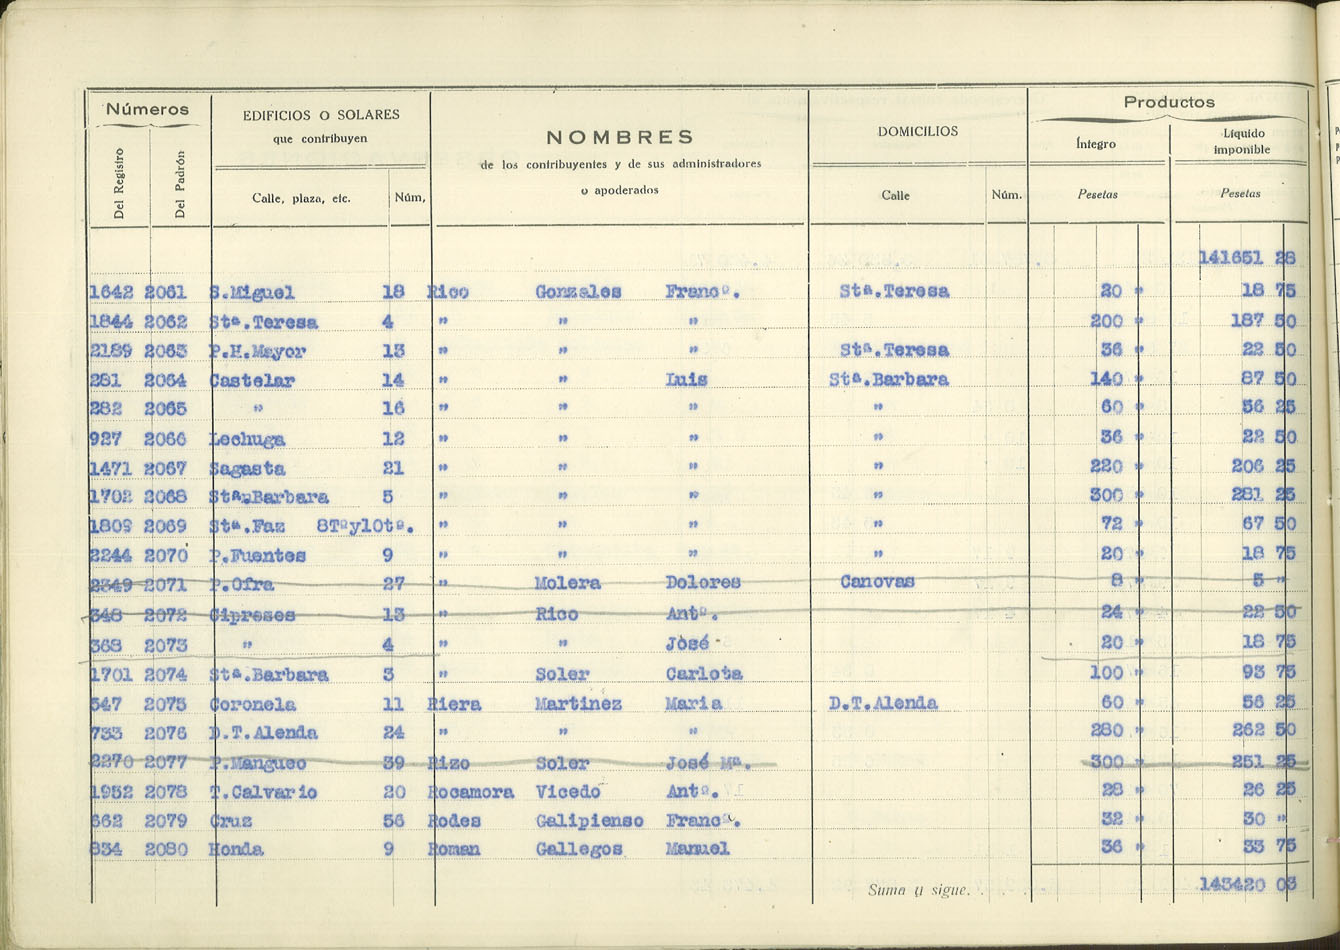 Números EDIFICIOS O SOLARES que contribuyen NOMBRES de los contribuyentes y de sus administradores o apoderados DOMICILIOS Productos
Del Registro Del Padrón Calle, plaza, etc. Núm, Calle Núm. Íntegro Pesetas Líquido imponible Pesetas
141651 28
1642 2061 S.Miguel 18 Rico Gonzales Francº. Stª.Teresa 20 " 18 75
1844 2062 Stª.Teresa 4 " " " 200 " 187 50
2189 2063 P.H.Mayor 13 " " " Stª.Teresa 36 " 22 50
281 2064 Castelar 14 " " Luis Stª.Barbara 140 " 87 50
282 2065 " 16 " " " " 60 " 56 25
927 2066 Lechuga 12 " " " " 36 " 22 50
1471 2067 Sagasta 21 " " " " 220 " 206 25
1702 2068 Stª.Barbara 5 " " " " 300 " 281 25
1809 2069 Stª.Faz 8Tºy10tº. " " " " 72 " 67 50
2244 2070 P.Fuentes 9 " " " " 20 " 18 75
2349 2071 P.Ofra 27 " Molera Dolores Canovas 8 " 5 "
348 2072 Cipreses 13 " Rico Antº. 24 " 22 50
368 2073 " 4 " " José 20 " 18 75
1701 2074 Stª.Barbara 3 " Soler Carlota 100 " 93 75
547 2075 Coronela 11 Riera Martinez Maria D.T.Alenda 60 " 56 25
733 2076 D.T.Alenda 24 " " " 280 " 262 50
2270 2077 P.Mangueo 39 Rizo Soler José Mª. 300 " 251 25
1952 2078 T.Calvario 20 Rocamora Vicedo Antº. 28 " 26 25
662 2079 Cruz 56 Rodes Galipienso Francª. 32 " 30 "
834 2080 Honda 9 Roman Gallegos Manuel 36 " 33 75
Suma y sigue. . . . 143420 03